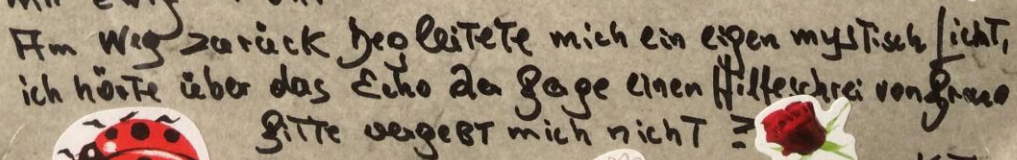 Am Weg zurück begleitete mich ein eigen mystisch Licht,
ich hörte über das Echo da Sage einen Hilfeschrei von
Bitte vergeßt mich nicht